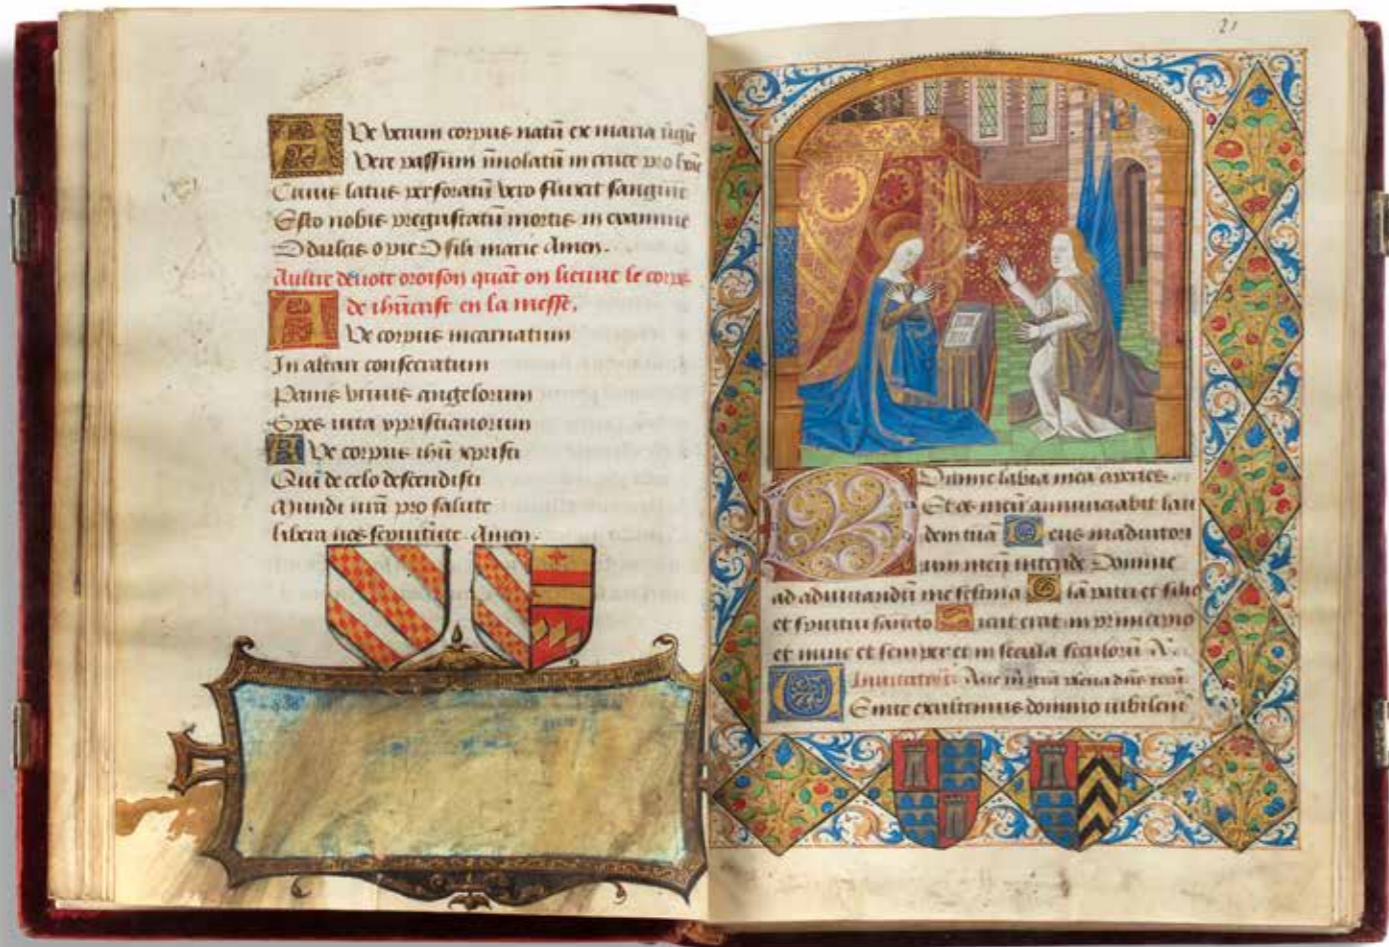 AVe verum corpus natū ex maria v̄gīe
Vere passum īmolatū in cruce pro hoīe
Cuius latus perforatū vero fluxit sanguine
Esto nobis pregustatū mortis in examine
O dulcis o pie O fili marie Amen.
Aultre deuote oroison quāt on lieuue le corps
de ihūcrist en la messe.
AVe corpus incarnatum
In altari consecratum
Panis viuus angelorum
Spes vita xpristianorum
AVe corpus ihū xpristi
Qui de celo descendisti
Mundi
pro salute
libera nos Amen.
21
DOmine labia mea aperies.
Et os meū annunciabit lau
dem tuā Deus in adiutori
um meū intende Domine
ad adiuuandū me festina Glā patri et filio
et spiritui sancto Sicut erat in principio
et nunc et semper et in secula seculorū A.
Inuitatoriū. Aue mā grā plena dn̄s tecū.
VEnite exultemus domino iubilem̄